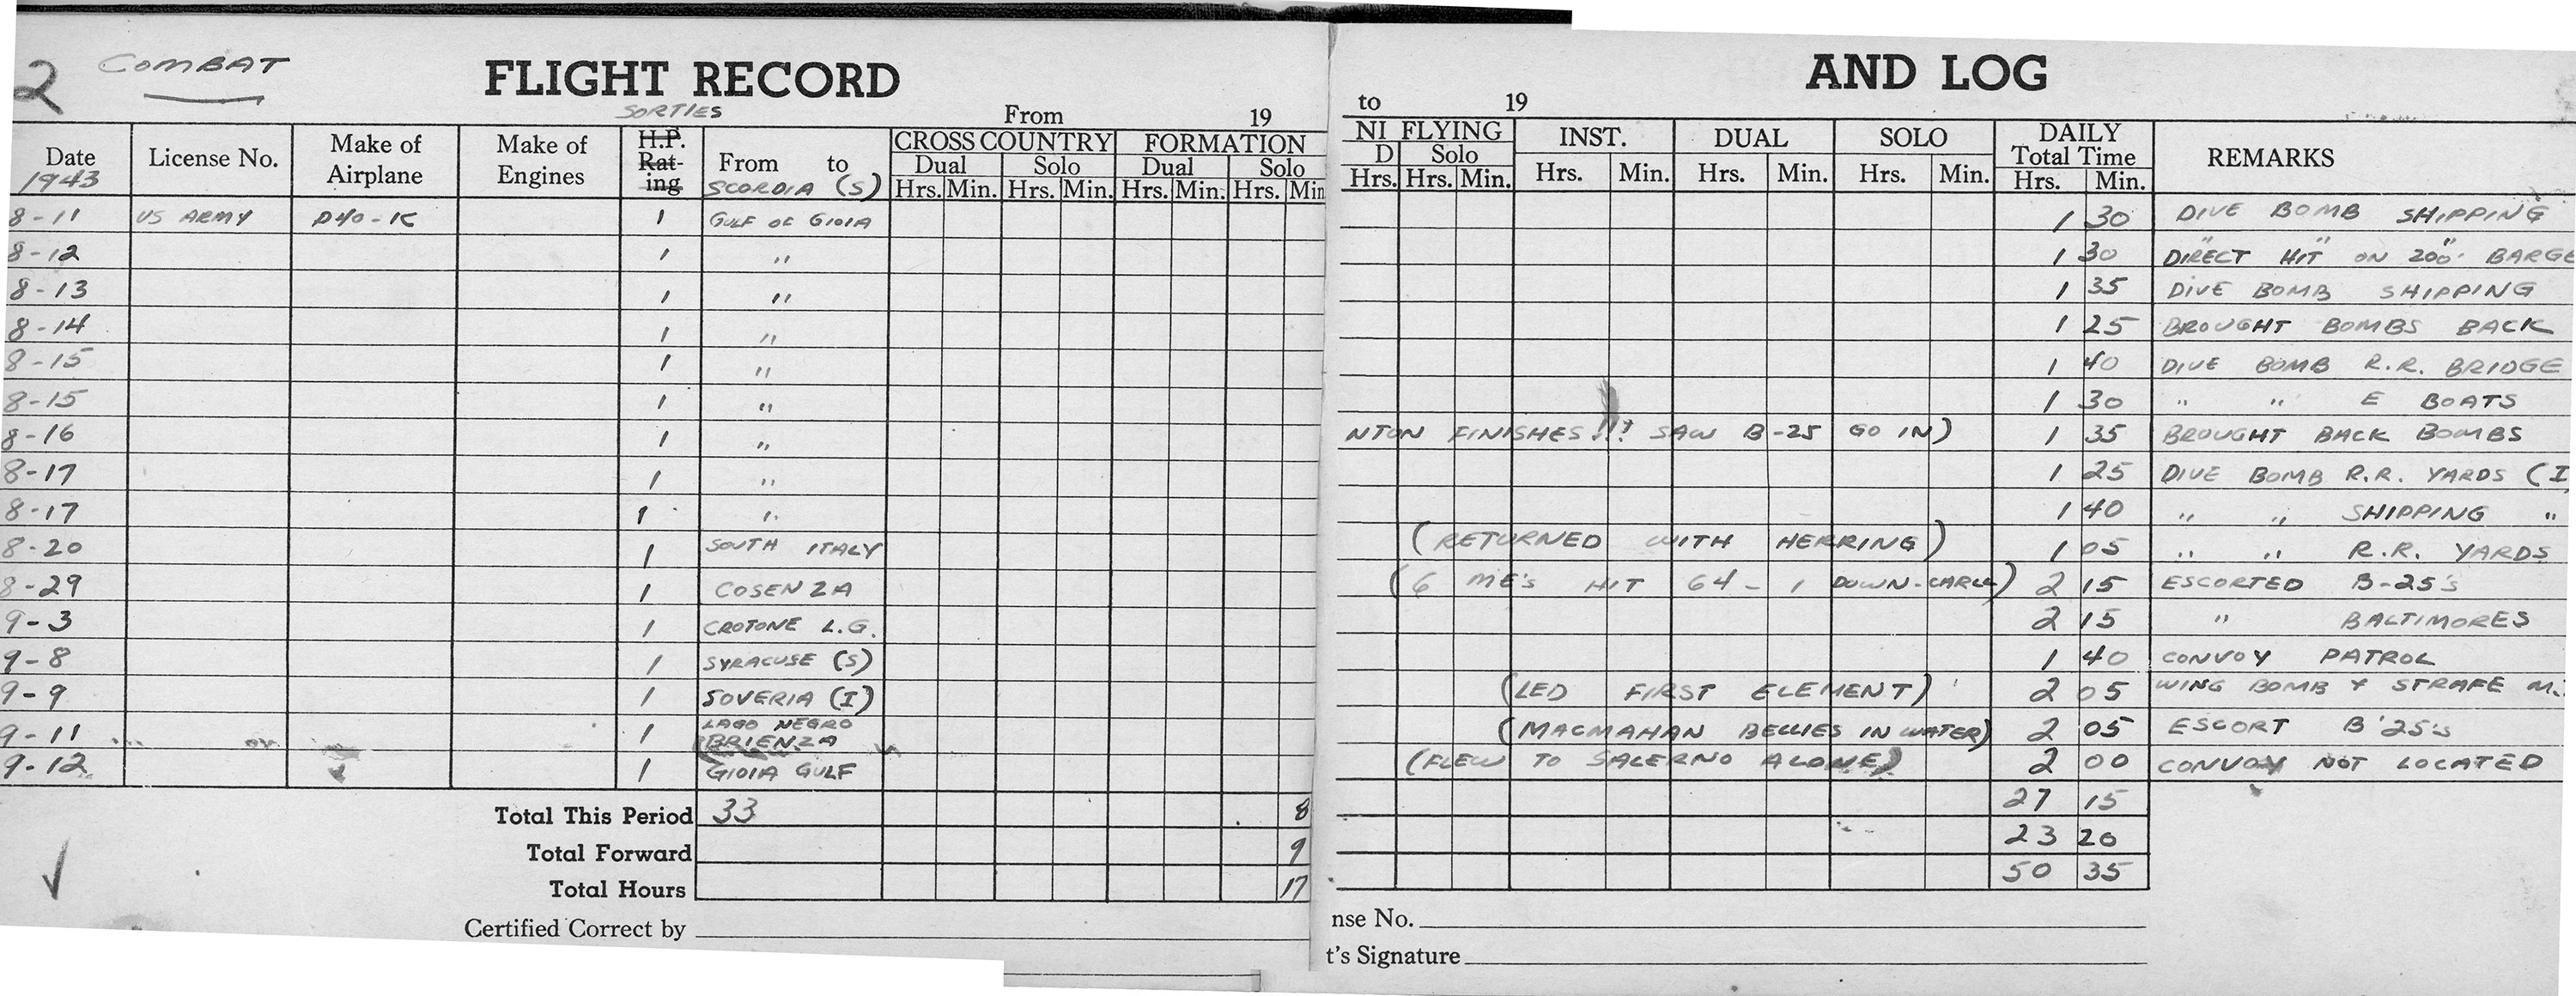 2 COMBAT FLIGHT RECORD AND LOG
SORTIES From 19 to 19
Date 1943 License No. Make of Airplane Make of Engines H.P. Rating From to SCORDIA (S) CROSS COUNTRY Dual Solo FORMATION Dual Solo NI FLYING D Solo INST. DUAL SOLO DAILY Total Time REMARKS
Hrs. Min. Hrs. Min. Hrs. Min. Hrs. Min Hrs. Hrs. Min. Hrs. Min. Hrs. Min. Hrs. Min. Hrs. Min.
8-11 US ARMY P40-K 1 GULF OF GIOIA 1 30 DIVE BOMB SHIPPING
8-12 1 " 1 30 " " " DIRECT HIT ON 200' BARGE
8-13 1 " 1 35 DIVE BOMB SHIPPING
8-14 1 " 1 25 BROUGHT BOMBS BACK
8-15 1 " 1 40 DIVE BOMB R.R. BRIDGE
8-15 1 " 1 30 " " E BOATS
8-16 1 " NTON FINISHES!!! SAW B-25 GO IN) 1 35 BROUGHT BACK BOMBS
8-17 1 " 1 25 DIVE BOMB R.R. YARDS (I
8-17 1 " 1 40 " " SHIPPING "
8-20 1 SOUTH ITALY (RETURNED WITH HERRING) 1 05 " " R.R. YARDS
8-29 1 COSENZA (6 ME's HIT 64 - 1 DOWN - ) 2 15 ESCORTED B-25's
9-3 1 CROTONE L.G. 2 15 " BALTIMORES
9-8 1 SYRACUSE (S) 1 40 CONVOY PATROL
9-9 1 SOVERIA (I) (LED FIRST ELEMENT) 2 05 WING BOMB & STRAFE M.
9-11 1 LAGO NEGRO BRIENZA (MACMAHAN BELLIES IN WATER) 2 05 ESCORT B'25's
9-12 1 GIOIA GULF (FLEW TO SALERNO ALONE) 2 00 CONVOY NOT LOCATED
Total This Period 33 8 27 15
Total Forward 9 23 20
Total Hours 17 50 35
Certified Correct by nse No.
t's Signature